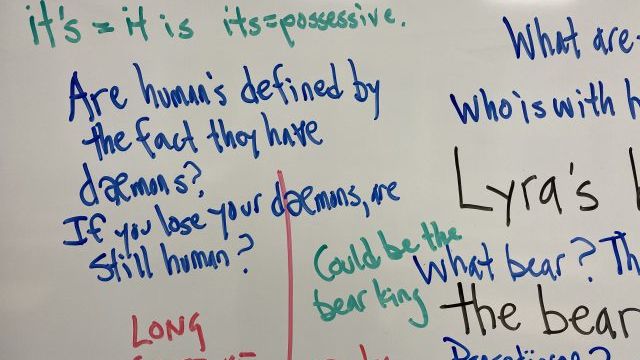 it's = it is its=possessive.
What are
Are human's defined by
the fact thoy have
dæmons?
Who is with
If you lose your dæmons, are
still human?
Lyra's
Could be the
bear king
What bear? Th
the bear
LONG